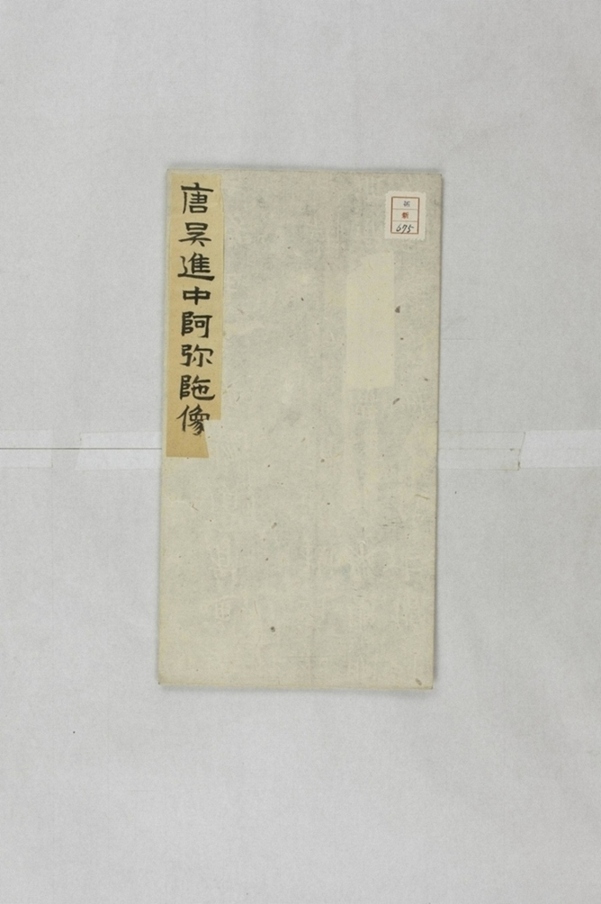 唐吴進中阿弥陁像
675